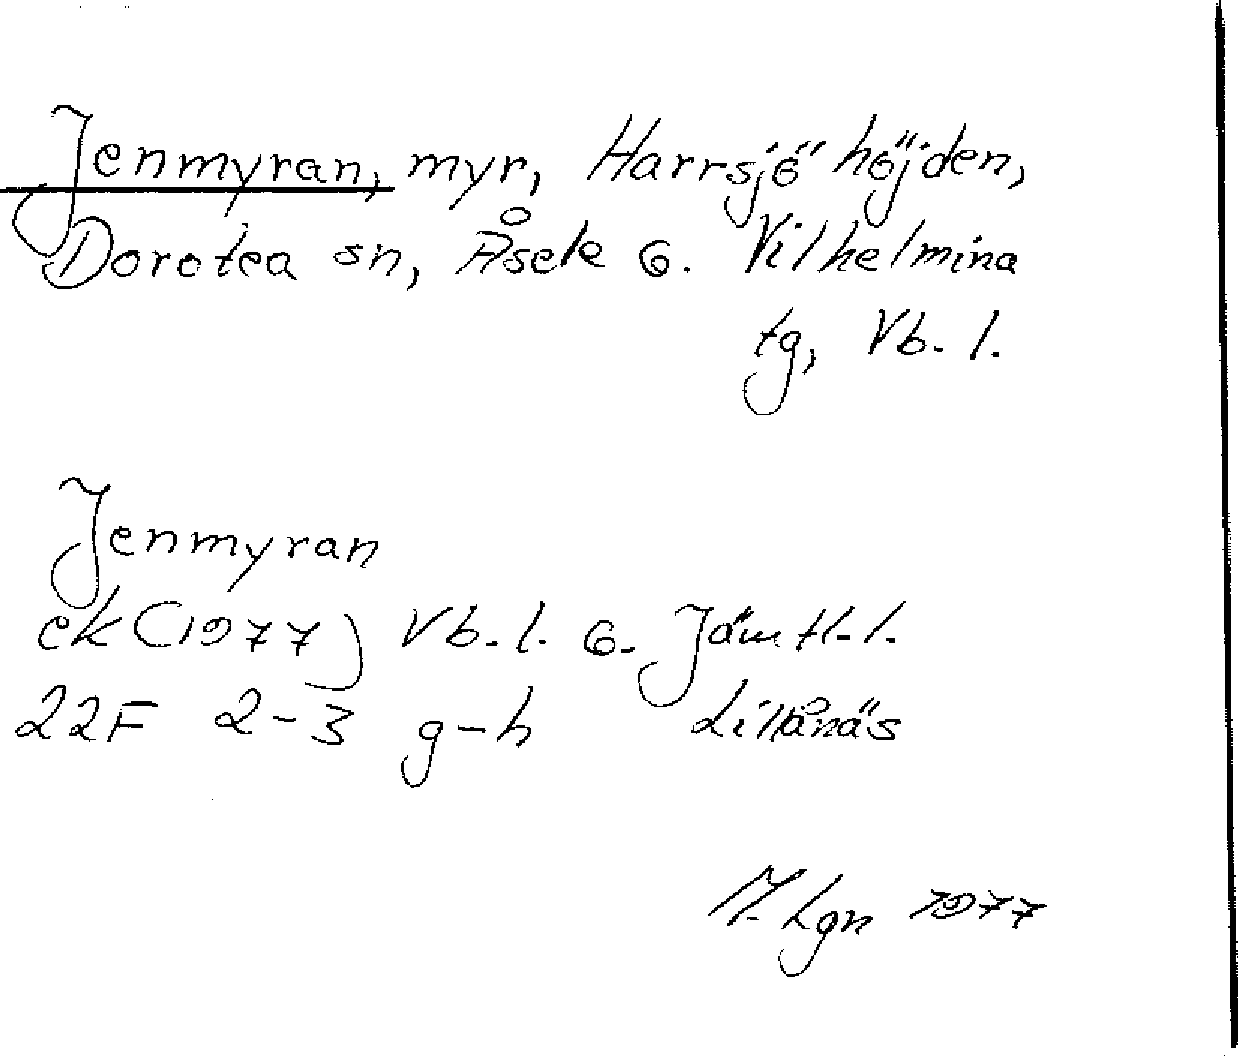 Jenmyran, myr, Harrsjöhöjden,
Dorotea sn, Åsele 6. Vilhelmina
tg, Vb. l.
Jenmyran
ek (1977) Vb. l. 6. Jämtl. l.
22F 2-3 g-h Lillånäs
M. Lgn 1977